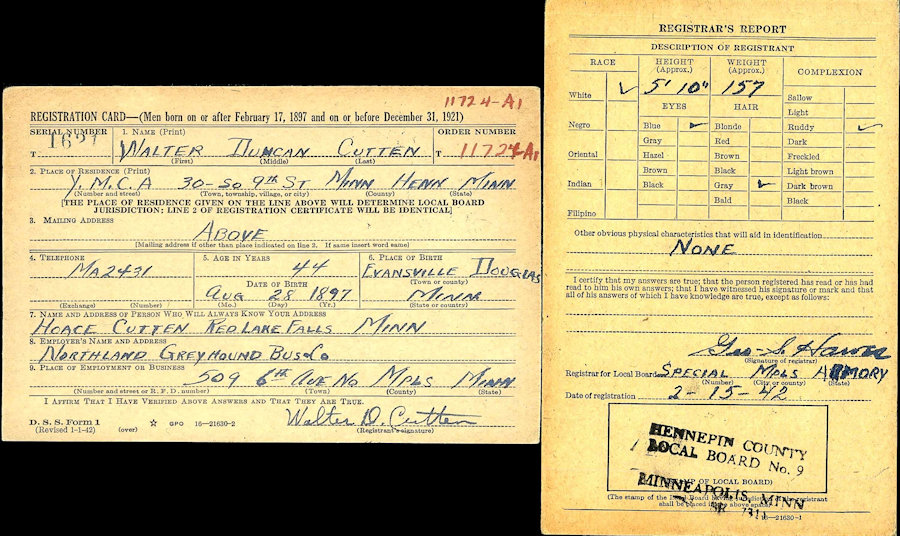 11724-A1
REGISTRATION CARD—(Men born on or after February 17, 1897 and on or before December 31, 1921)
SERIAL NUMBER 1. NAME (Print) ORDER NUMBER
T 1697 WALTER DUNCAN CUTTEN T 11724-A1
(First) (Middle) (Last)
2. PLACE OF RESIDENCE (Print)
Y.M.C.A 30-SO 9th ST MINN HENN MINN
(Number and street) (Town, township, village, or city) (County) (State)
[THE PLACE OF RESIDENCE GIVEN ON THE LINE ABOVE WILL DETERMINE LOCAL BOARD
JURISDICTION; LINE 2 OF REGISTRATION CERTIFICATE WILL BE IDENTICAL]
3. MAILING ADDRESS
ABOVE
[Mailing address if other than place indicated on line 2. If same insert word same]
4. TELEPHONE 5. AGE IN YEARS 6. PLACE OF BIRTH
MA2431 44 EVANSVILLE DOUGLAS
DATE OF BIRTH (Town or county)
AUG 28 1897 MINN
(Exchange) (Number) (Mo.) (Day) (Yr.) (State or country)
7. NAME AND ADDRESS OF PERSON WHO WILL ALWAYS KNOW YOUR ADDRESS
HORACE CUTTEN RED LAKE FALLS MINN
8. EMPLOYER'S NAME AND ADDRESS
NORTHLAND GREYHOUND BUS Co
9. PLACE OF EMPLOYMENT OR BUSINESS
509 6th AVE NO MPLS MINN
(Number and street or R. F. D. number) (Town) (County) (State)
I AFFIRM THAT I HAVE VERIFIED ABOVE ANSWERS AND THAT THEY ARE TRUE.
Walter D. Cutten
D. S. S. Form 1
(Revised 1-1-42) (over) ☆ GPO 16—21630-2 (Registrant's signature)
REGISTRAR'S REPORT
DESCRIPTION OF REGISTRANT
RACE HEIGHT (Approx.) WEIGHT (Approx.) COMPLEXION
White ✓ 5' 10" 157 Sallow
EYES HAIR Light
Negro Blue ✓ Blonde Ruddy ✓
Gray Red Dark
Oriental Hazel Brown Freckled
Brown Black Light brown
Indian Black Gray ✓ Dark brown
Bald Black
Filipino
Other obvious physical characteristics that will aid in identification
NONE
I certify that my answers are true; that the person registered has read or has had
read to him his own answers; that I have witnessed his signature or mark and that
all of his answers of which I have knowledge are true, except as follows:
Geo. S.
(Signature of registrar)
Registrar for Local Board SPECIAL MPLS ARMORY
(Number) (City or county) (State)
Date of registration 2-15-42
HENNEPIN COUNTY
LOCAL BOARD No. 9
OF LOCAL BOARD)
MINNEAPOLIS, MINN
(The stamp of the Local Board having jurisdiction of the registrant
shall be placed in the above space)
16—21630-1